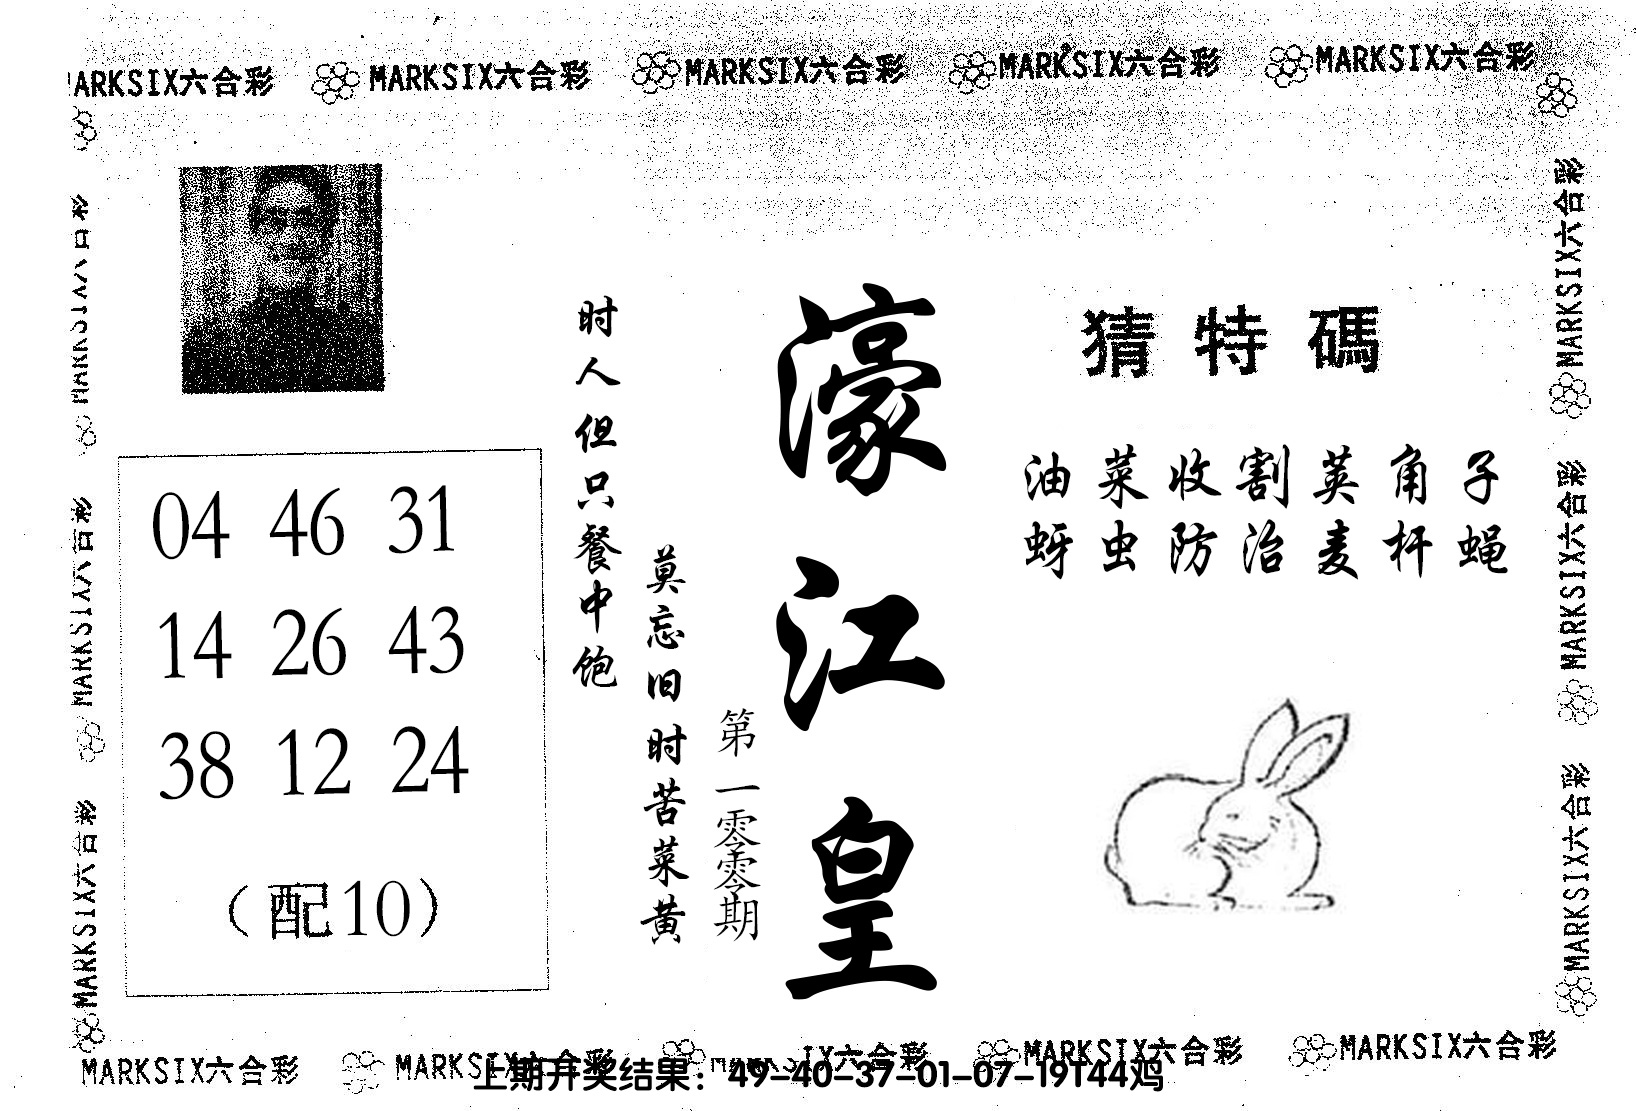 ARKSIX六合彩 MARKSIX六合彩 MARKSIX六合彩 MARKSIX六合彩 MARKSIX六合彩
猜特碼
油菜收割荚角子
蚜虫防治麦杆蝇
濠江皇
第一零零期
莫忘旧时苦菜黄
时人但只餐中饱
04 46 31
14 26 43
38 12 24
（配10）
MARKSIX六合彩
MARKSIX六合彩
MARKSIX六合彩
MARKSIX六合彩
MARKSIX六合彩
MARKSIX六合彩 MARKSIX六合彩 IX六合彩 MARKSIX六合彩 MARKSIX六合彩
上期开奖结果：49-40-37-01-07-19T44鸡